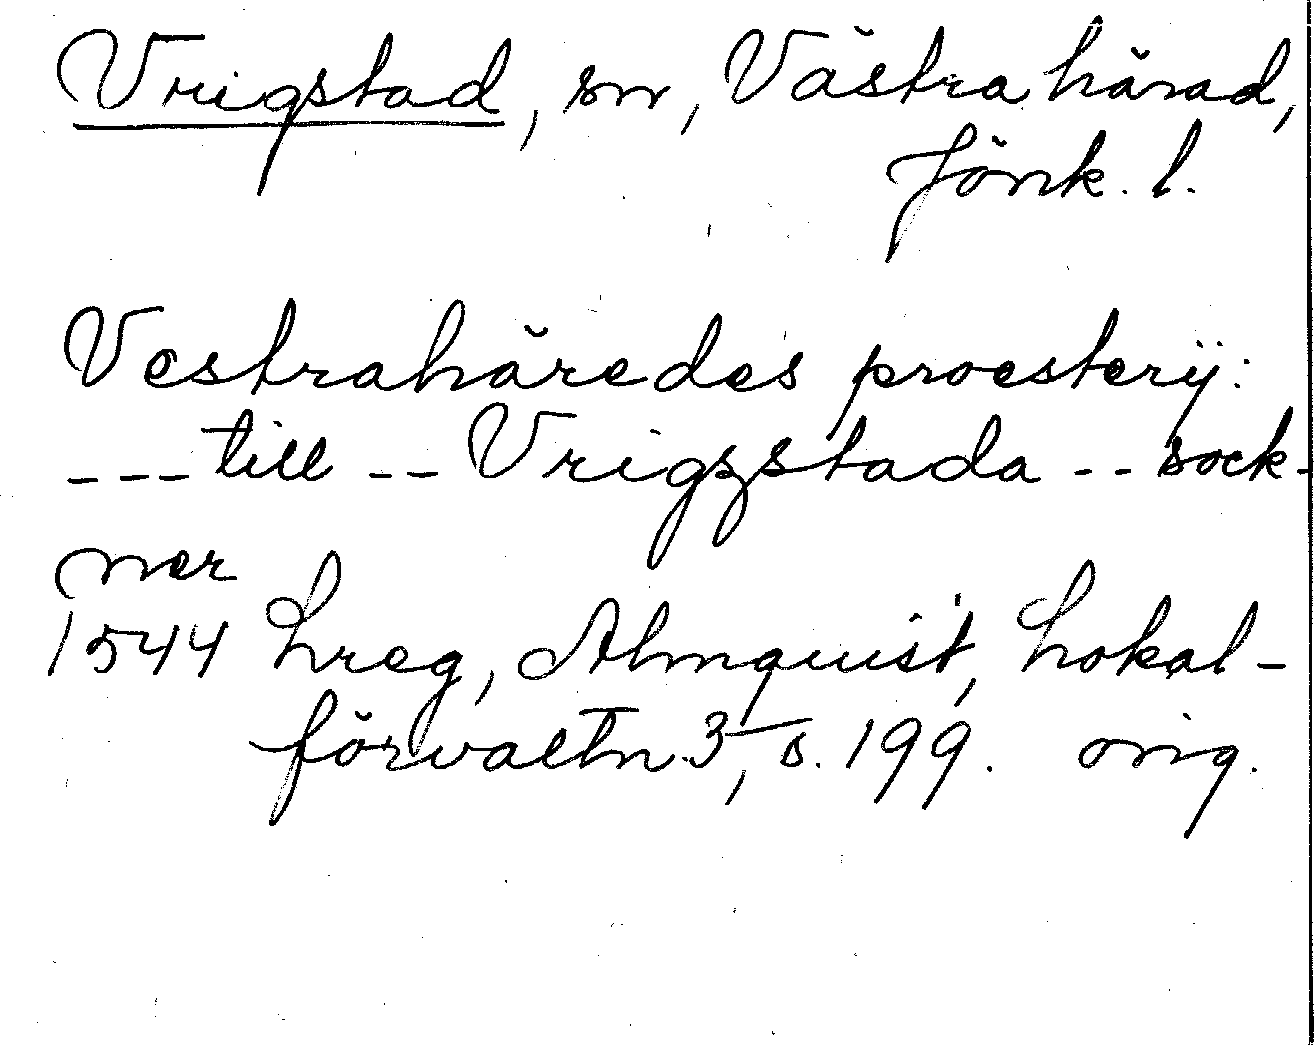 Vrigstad, sn, Västra härad,
Jönk. l.
Vestrahäredes proesterÿ:
---till -- Vrigzstada -- sock-
ner
1544 Lreg, Almquist, Lokal-
förvaltn. 3, s. 199. orig.